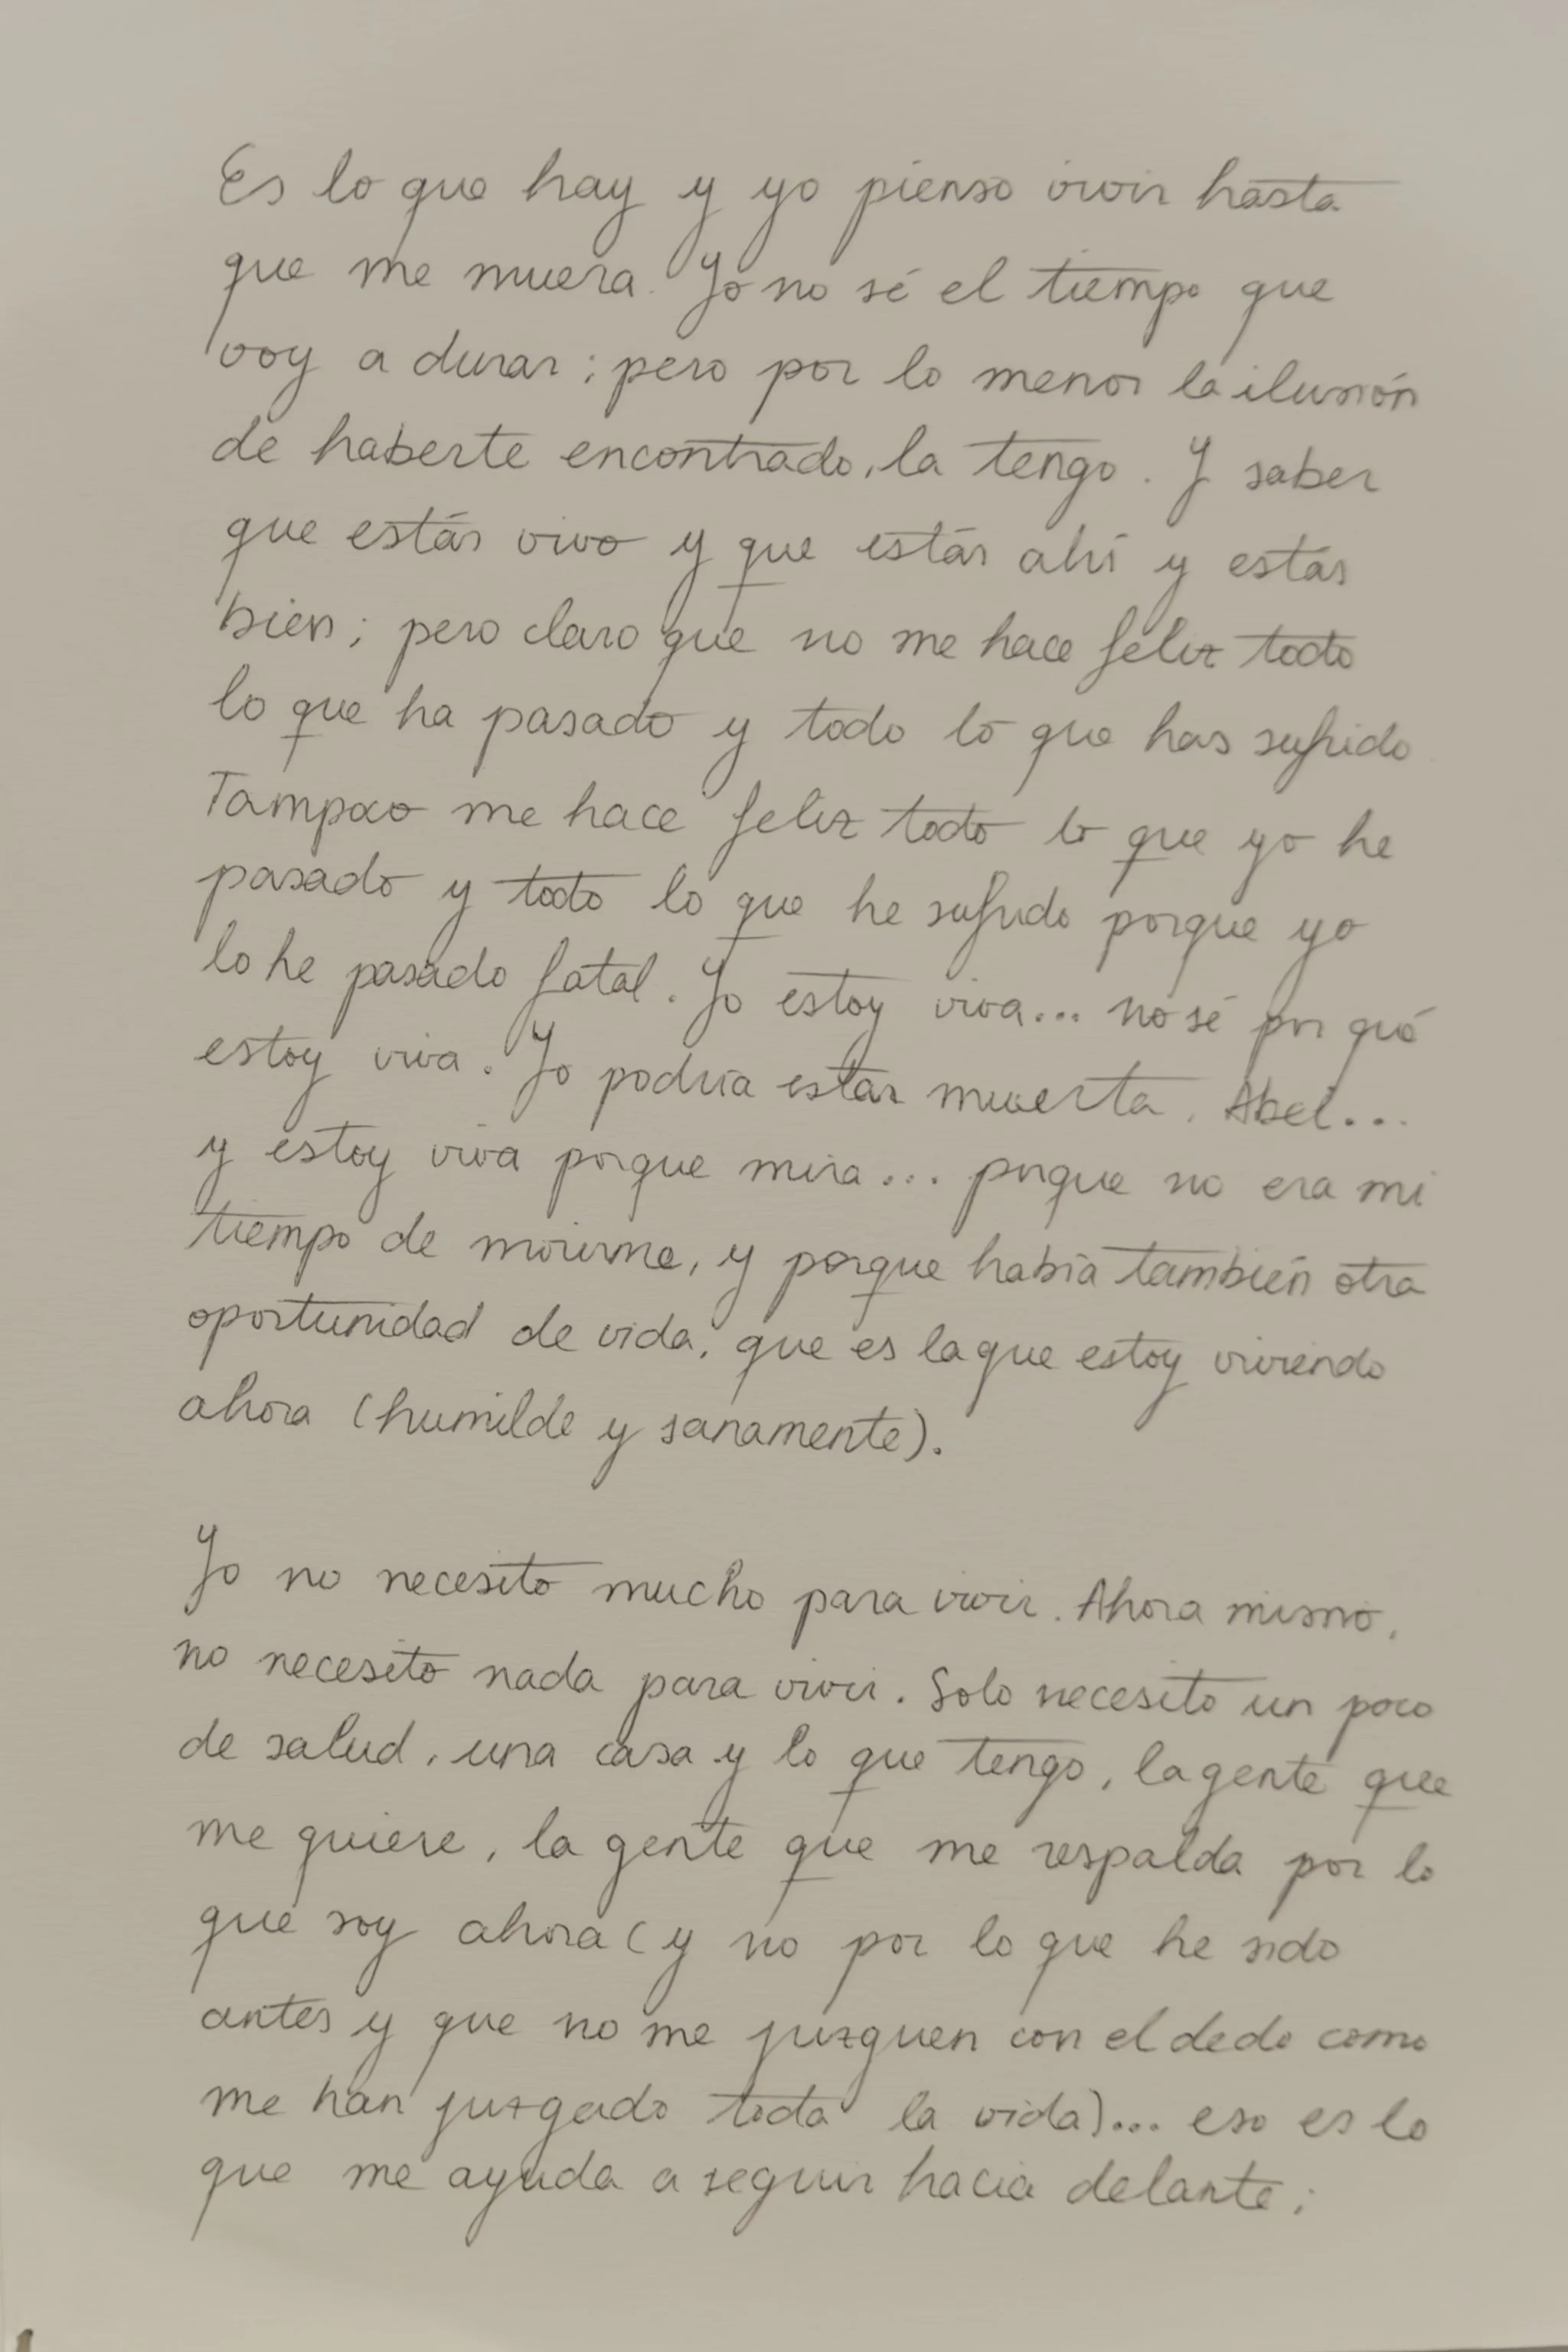 Es lo que hay y yo pienso vivir hasta
que me muera. Yo no sé el tiempo que
voy a durar; pero por lo menos la ilusión
de haberte encontrado, la tengo. Y saber
que estás vivo y que estás ahí y estás
bien; pero claro que no me hace feliz todo
lo que ha pasado y todo lo que has sufrido.
Tampoco me hace feliz todo lo que yo he
pasado y todo lo que he sufrido porque yo
lo he pasado fatal. Yo estoy viva... no sé por qué
estoy viva. Yo podría estar muerta, Abel...
y estoy viva porque mira... porque no era mi
tiempo de morirme, y porque había también otra
oportunidad de vida, que es la que estoy viviendo
ahora (humilde y sanamente).
Yo no necesito mucho para vivir. Ahora mismo,
no necesito nada para vivir. Solo necesito un poco
de salud, una casa y lo que tengo, la gente que
me quiere, la gente que me respalda por lo
que soy ahora (y no por lo que he sido
antes y que no me juzguen con el dedo como
me han juzgado toda la vida)... eso es lo
que me ayuda a seguir hacia delante;